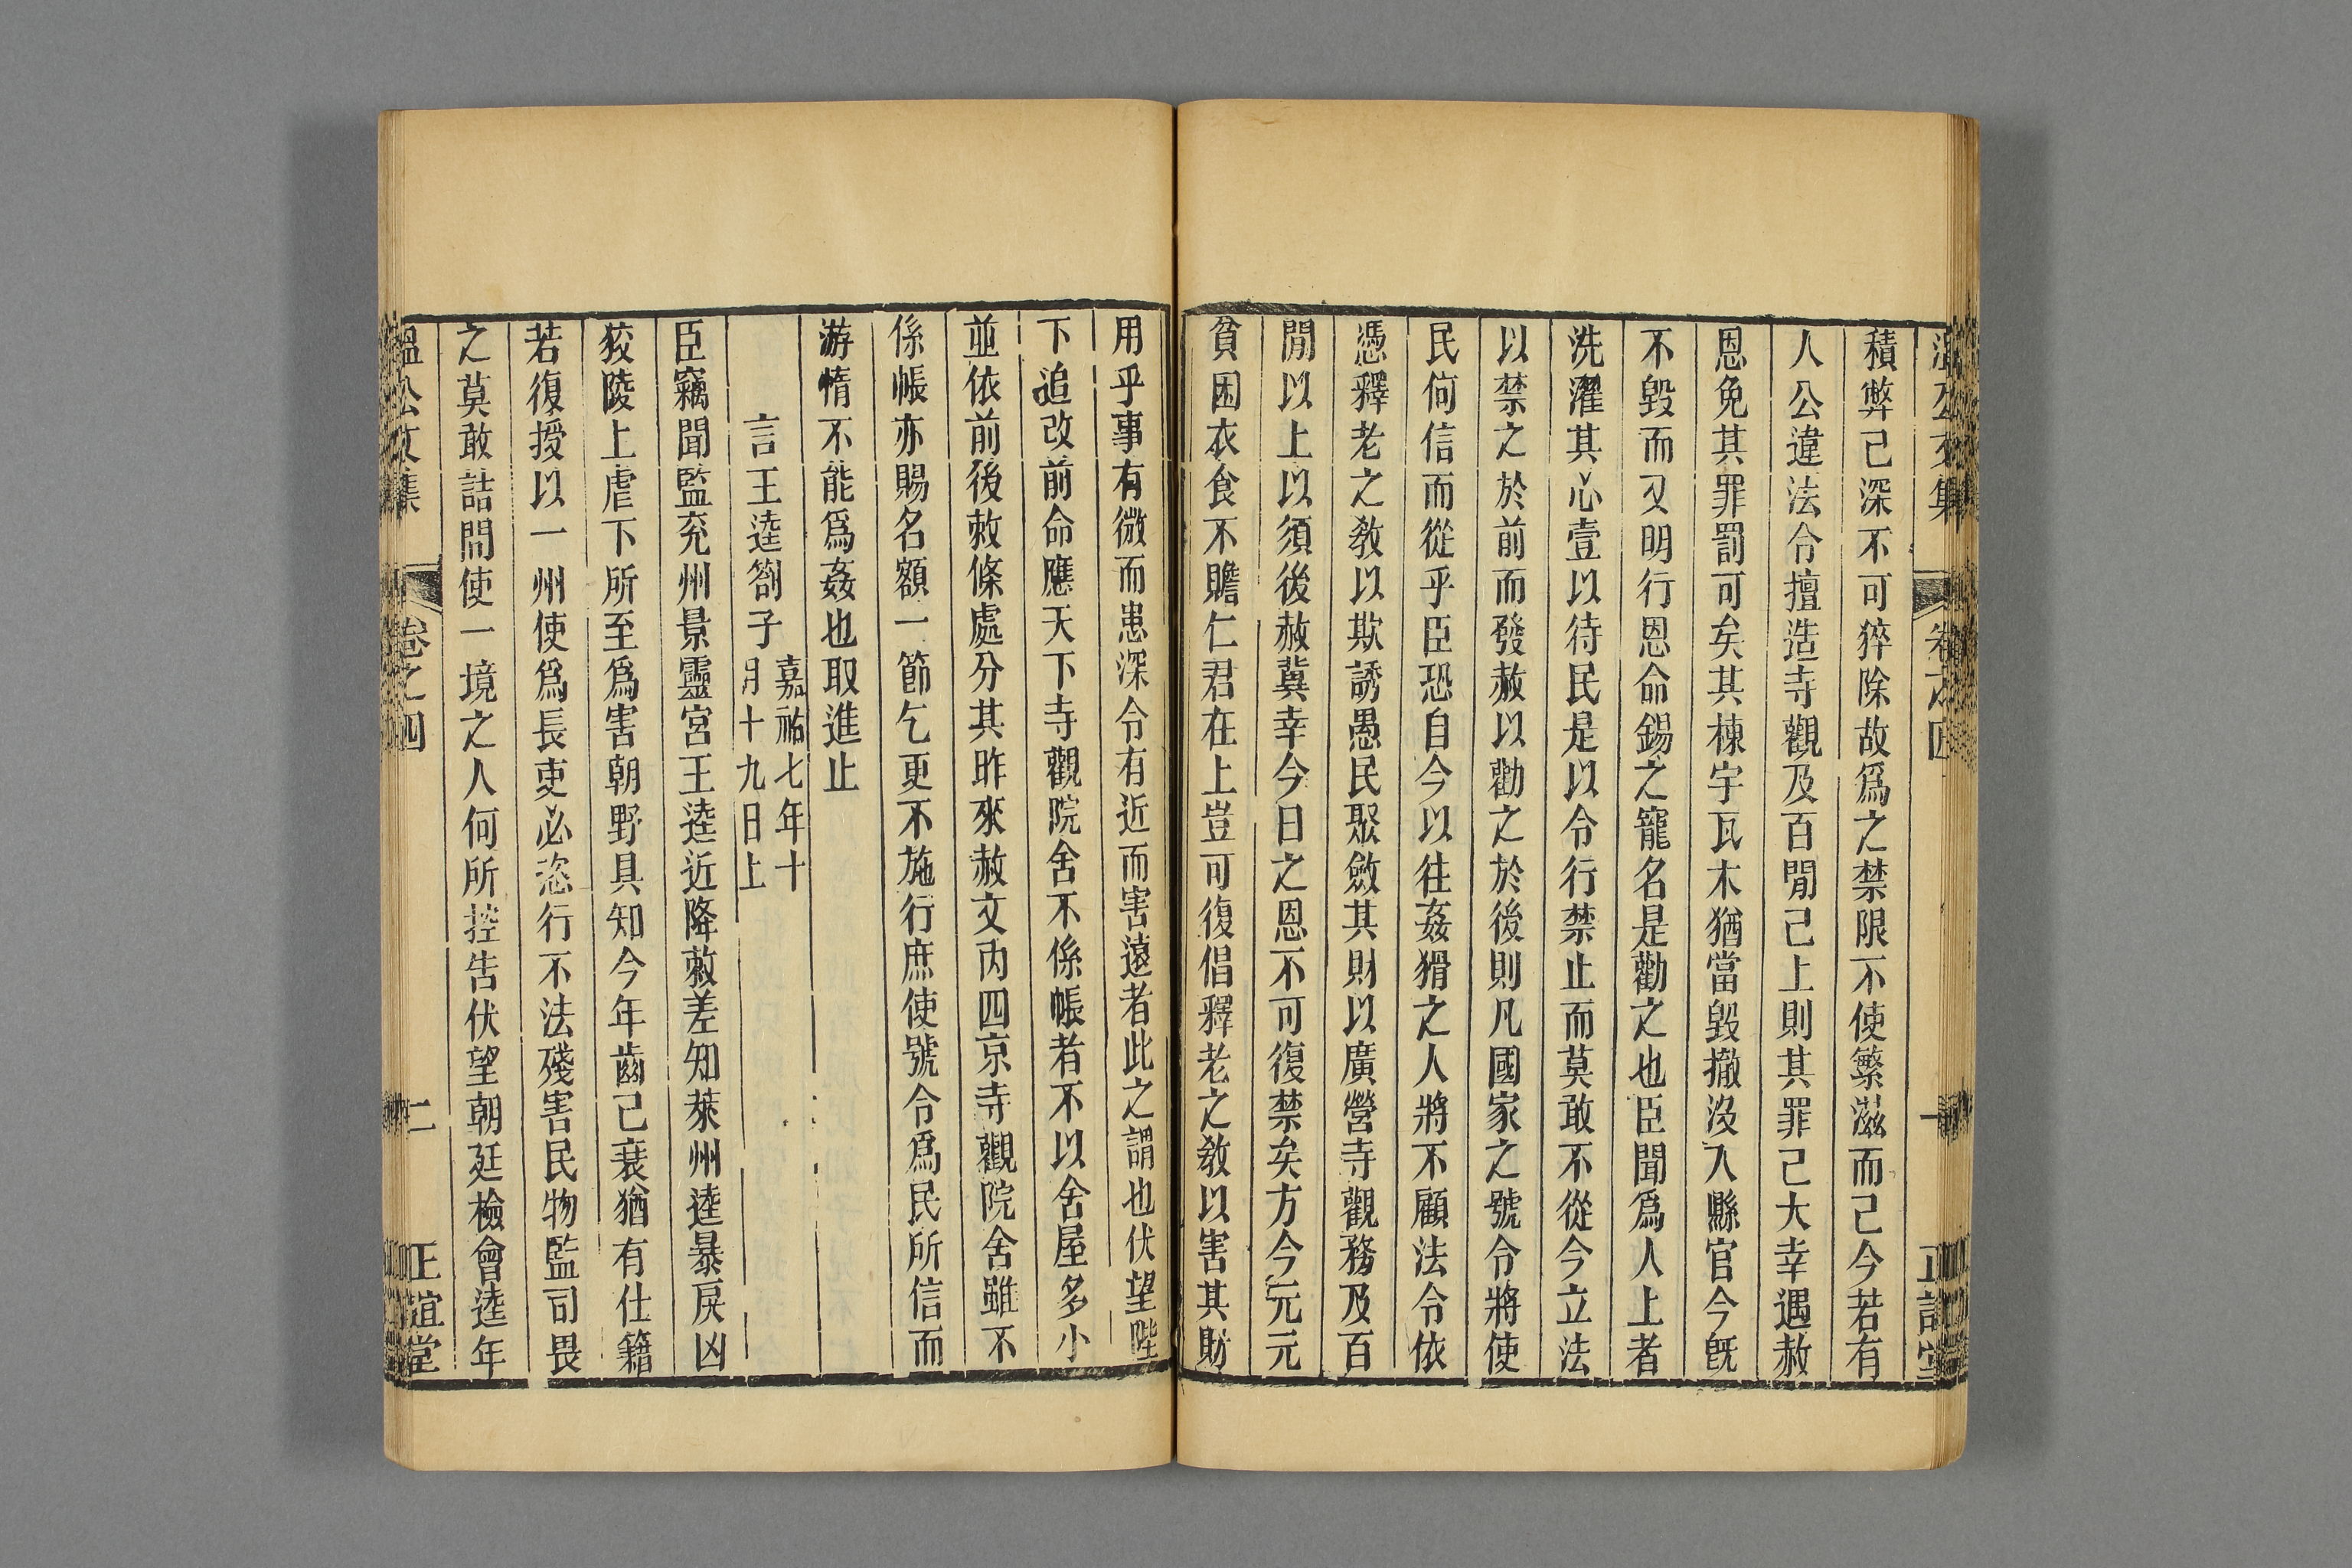 溫公文集 卷之四 一 正誼堂
積弊已深不可猝除故爲之禁限不使繁滋而已今若有
人公違法令擅造寺觀及百閒已上則其罪已大幸遇赦
恩免其罪罰可矣其棟宇瓦木猶當毀撤沒入縣官今旣
不毀而又明行恩命錫之寵名是勸之也臣聞爲人上者
洗濯其心壹以待民是以令行禁止而莫敢不從今立法
以禁之於前而發赦以勸之於後則凡國家之號令將使
民何信而從乎臣恐自今以往姦猾之人將不顧法令依
憑釋老之敎以欺誘愚民聚斂其財以廣營寺觀務及百
閒以上以須後赦冀幸今日之恩不可復禁矣方今元元
貧困衣食不贍仁君在上豈可復倡釋老之敎以害其財
用乎事有微而患深令有近而害遠者此之謂也伏望陛
下追改前命應天下寺觀院舍不係帳者不以舍屋多小
並依前後敕條處分其昨來赦文內四京寺觀院舍雖不
係帳亦賜名額一節乞更不施行庶使號令爲民所信而
游惰不能爲姦也取進止
言王逵劄子 嘉祐七年十
月十九日上
臣竊聞監兖州景靈宮王逵近降敕差知萊州逵暴戾凶
狡陵上虐下所至爲害朝野具知今年齒已衰猶有仕籍
若復授以一州使爲長吏必恣行不法殘害民物監司畏
之莫敢詰問使一境之人何所控告伏望朝廷檢會逵年
溫公文集 卷之四 二 正誼堂